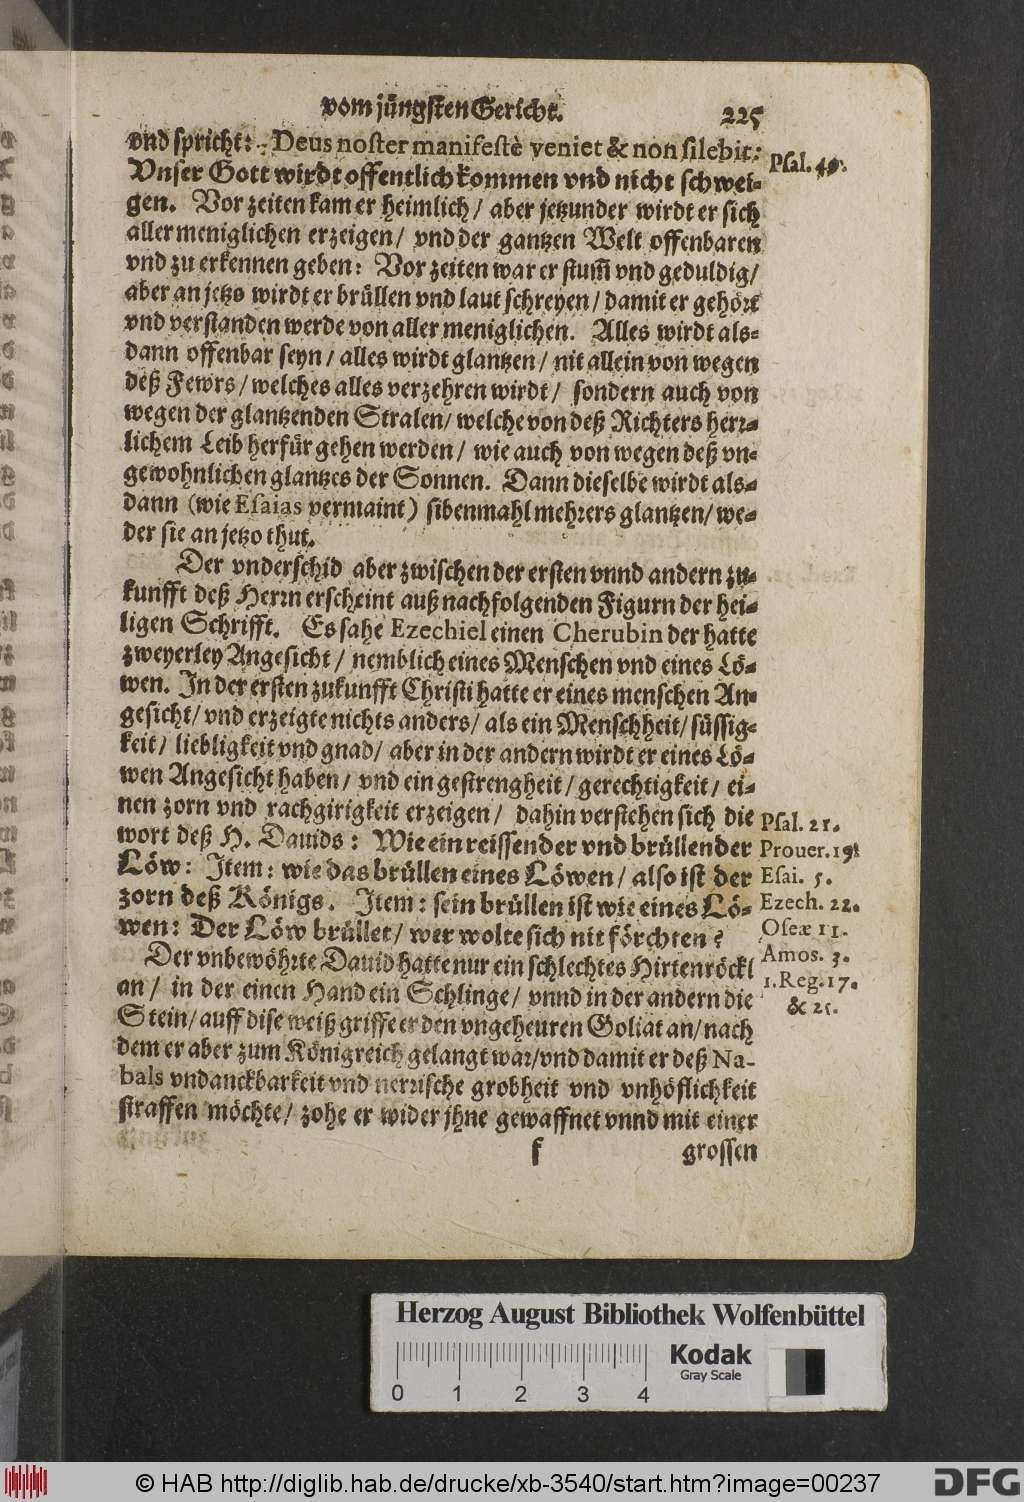 vom jüngsten Gericht. 225
vnd spricht: Deus noster manifestè veniet & non silebit:
Psal. 49.
Vnser Gott wirdt offentlich kommen vnd nicht schwei-
gen. Vor zeiten kam er heimlich / aber jetzunder wirdt er sich
aller meniglichen erzeigen / vnd der gantzen Welt offenbaren
vnd zu erkennen geben: Vor zeiten war er stum̃ vnd geduldig /
aber an jetzo wirdt er brüllen vnd laut schreyen / damit er gehört
vnd verstanden werde von aller meniglichen. Alles wirdt als-
dann offenbar seyn / alles wirdt glantzen / nit allein von wegen
deß Fewrs / welches alles verzehren wirdt / sondern auch von
wegen der glantzenden Stralen / welche von deß Richters herr-
lichem Leib herfür gehen werden / wie auch von wegen deß vn-
gewohnlichen glantzes der Sonnen. Dann dieselbe wirdt als-
dann (wie Esaias vermaint) sibenmahl mehrers glantzen / we-
der sie an jetzo thut.
Der vnderschid aber zwischen der ersten vnnd andern zu-
kunfft deß Herrn erscheint auß nachfolgenden Figurn der hei-
ligen Schrifft. Es sahe Ezechiel einen Cherubin der hatte
zweyerley Angesicht / nemblich eines Menschen vnd eines Lö-
wen. In der ersten zukunfft Christi hatte er eines menschen An-
gesicht / vnd erzeigte nichts anders / als ein Menschheit / süssig-
keit / liebligkeit vnd gnad / aber in der andern wirdt er eines Lö-
wen Angesicht haben / vnd ein gestrengheit / gerechtigkeit / ei-
nen zorn vnd rachgirigkeit erzeigen / dahin verstehen sich die
wort deß H. Dauids: Wie ein reissender vnd brüllender
Löw: Item: wie das brüllen eines Löwen / also ist der
zorn deß Königs. Item: sein brüllen ist wie eines Lö-
wen: Der Löw brüllet / wer wolte sich nit förchten?
Psal. 21.
Prouer. 19.
Esai. 5.
Ezech. 22.
Oseæ 11.
Amos. 3.
1. Reg. 17.
& 25.
Der vnbewöhrte Dauid hatte nur ein schlechtes Hirtenröckl
an / in der einen Hand ein Schlinge / vnnd in der andern die
Stein / auff dise weiß griffe er den vngeheuren Goliat an / nach
dem er aber zum Königreich gelangt war / vnd damit er deß Na-
bals vndanckbarkeit vnd nerrische grobheit vnd vnhöflichkeit
straffen möchte / zohe er wider jhne gewaffnet vnnd mit einer
f grossen
Herzog August Bibliothek Wolfenbüttel
0 1 2 3 4
Kodak
Gray Scale
© HAB http://diglib.hab.de/drucke/xb-3540/start.htm?image=00237
DFG